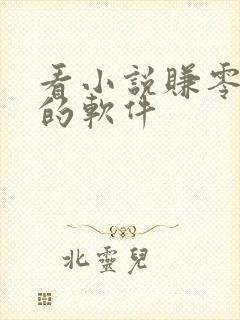 看小説賺零
的軟件
北靈兒